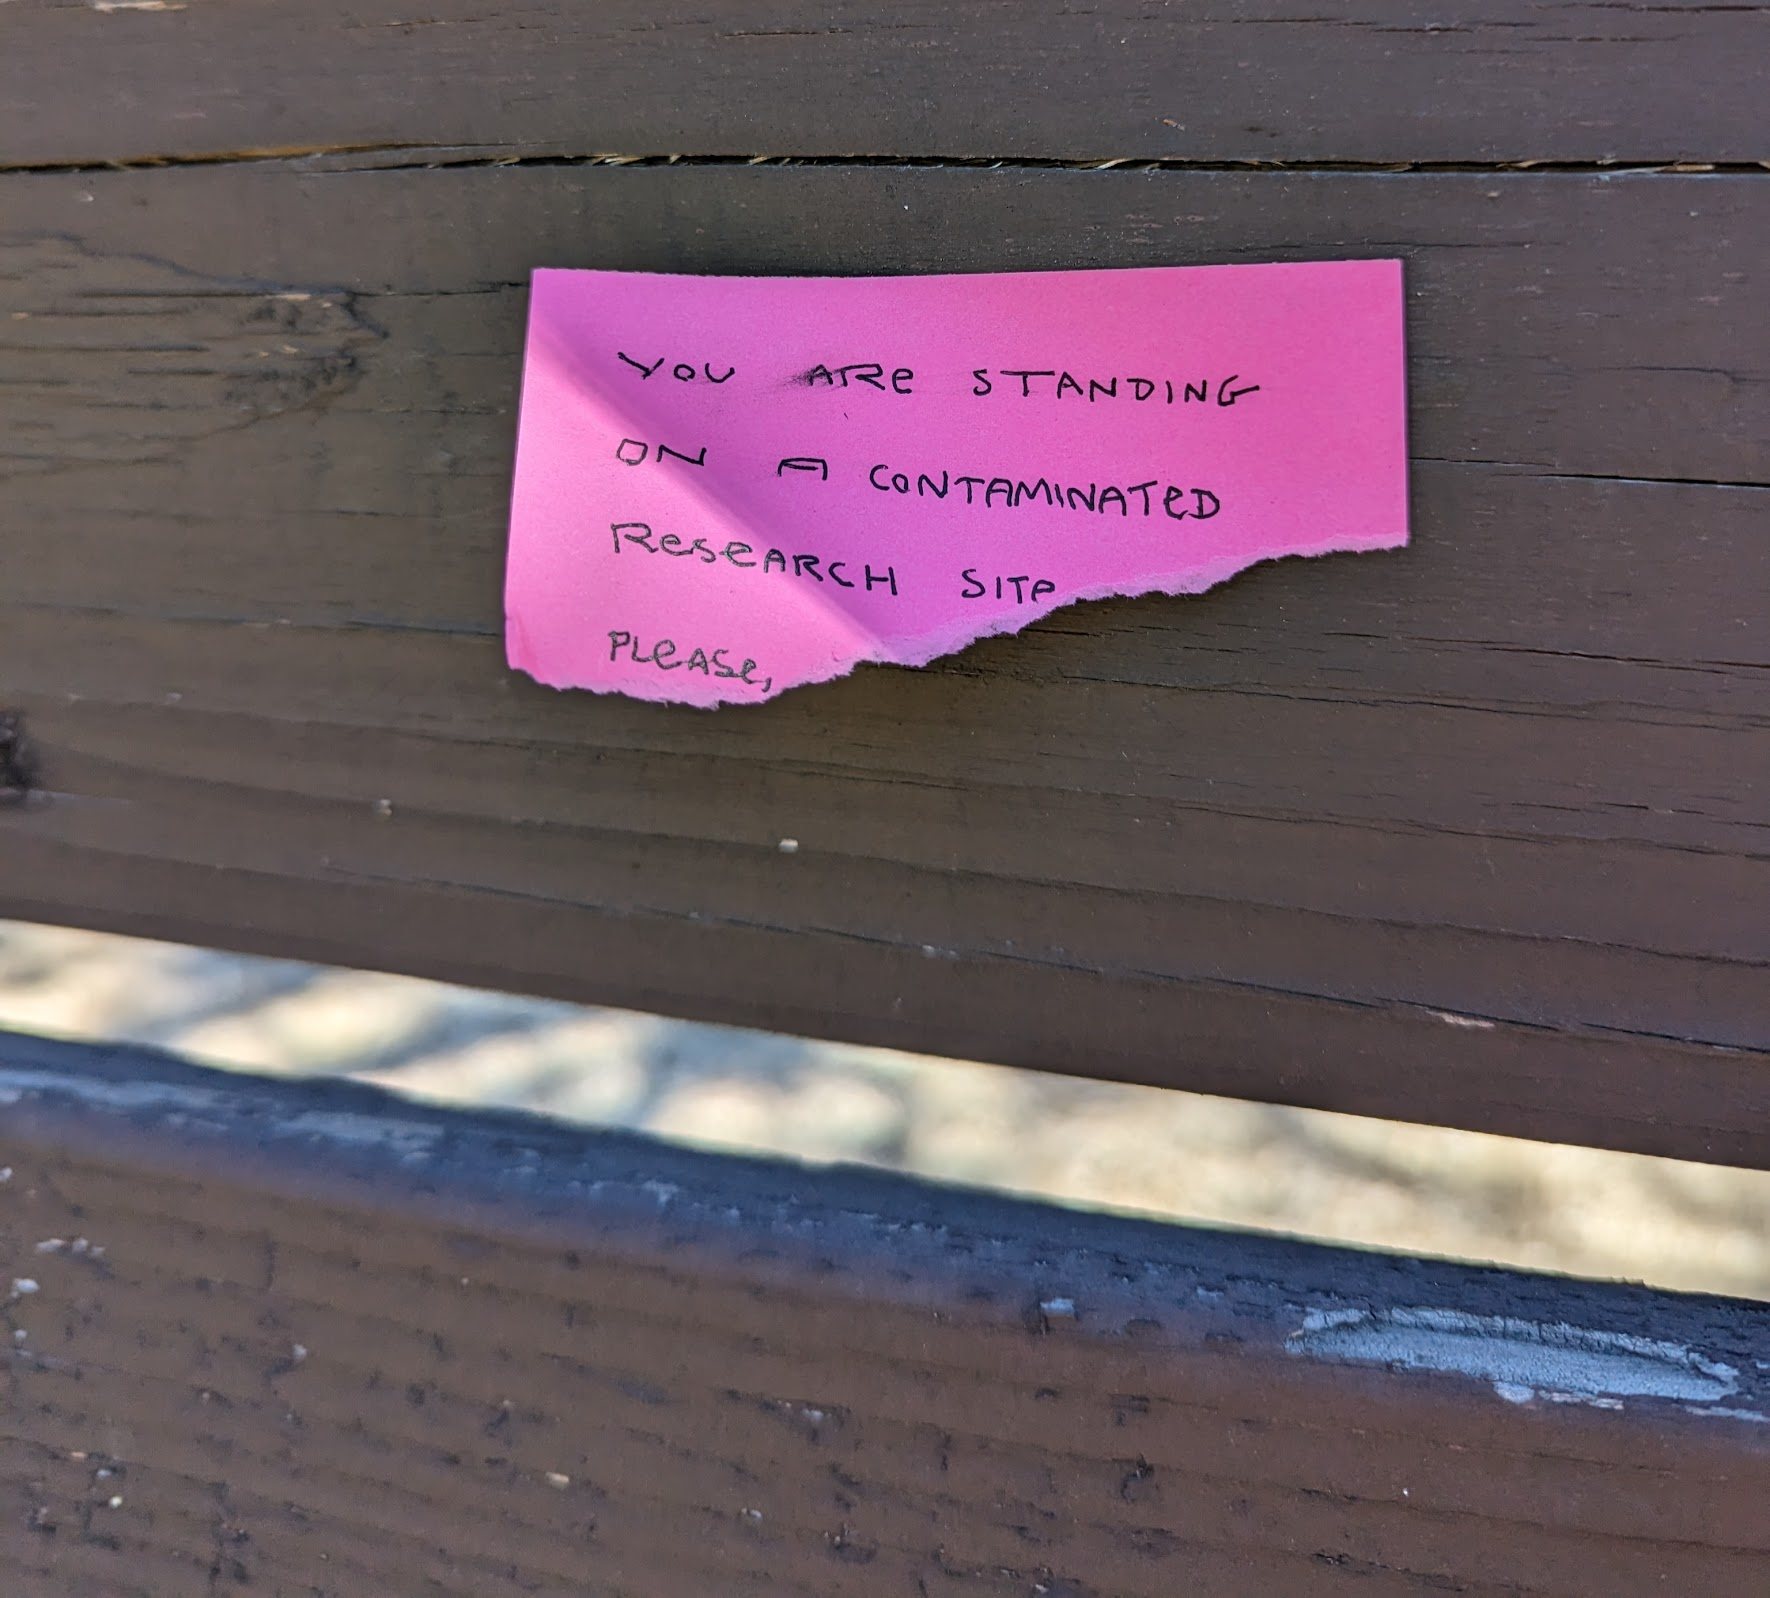 YOU ARe STANDING
ON A CONTAMINATeD
ReSeARCH SITe
PLeASe,